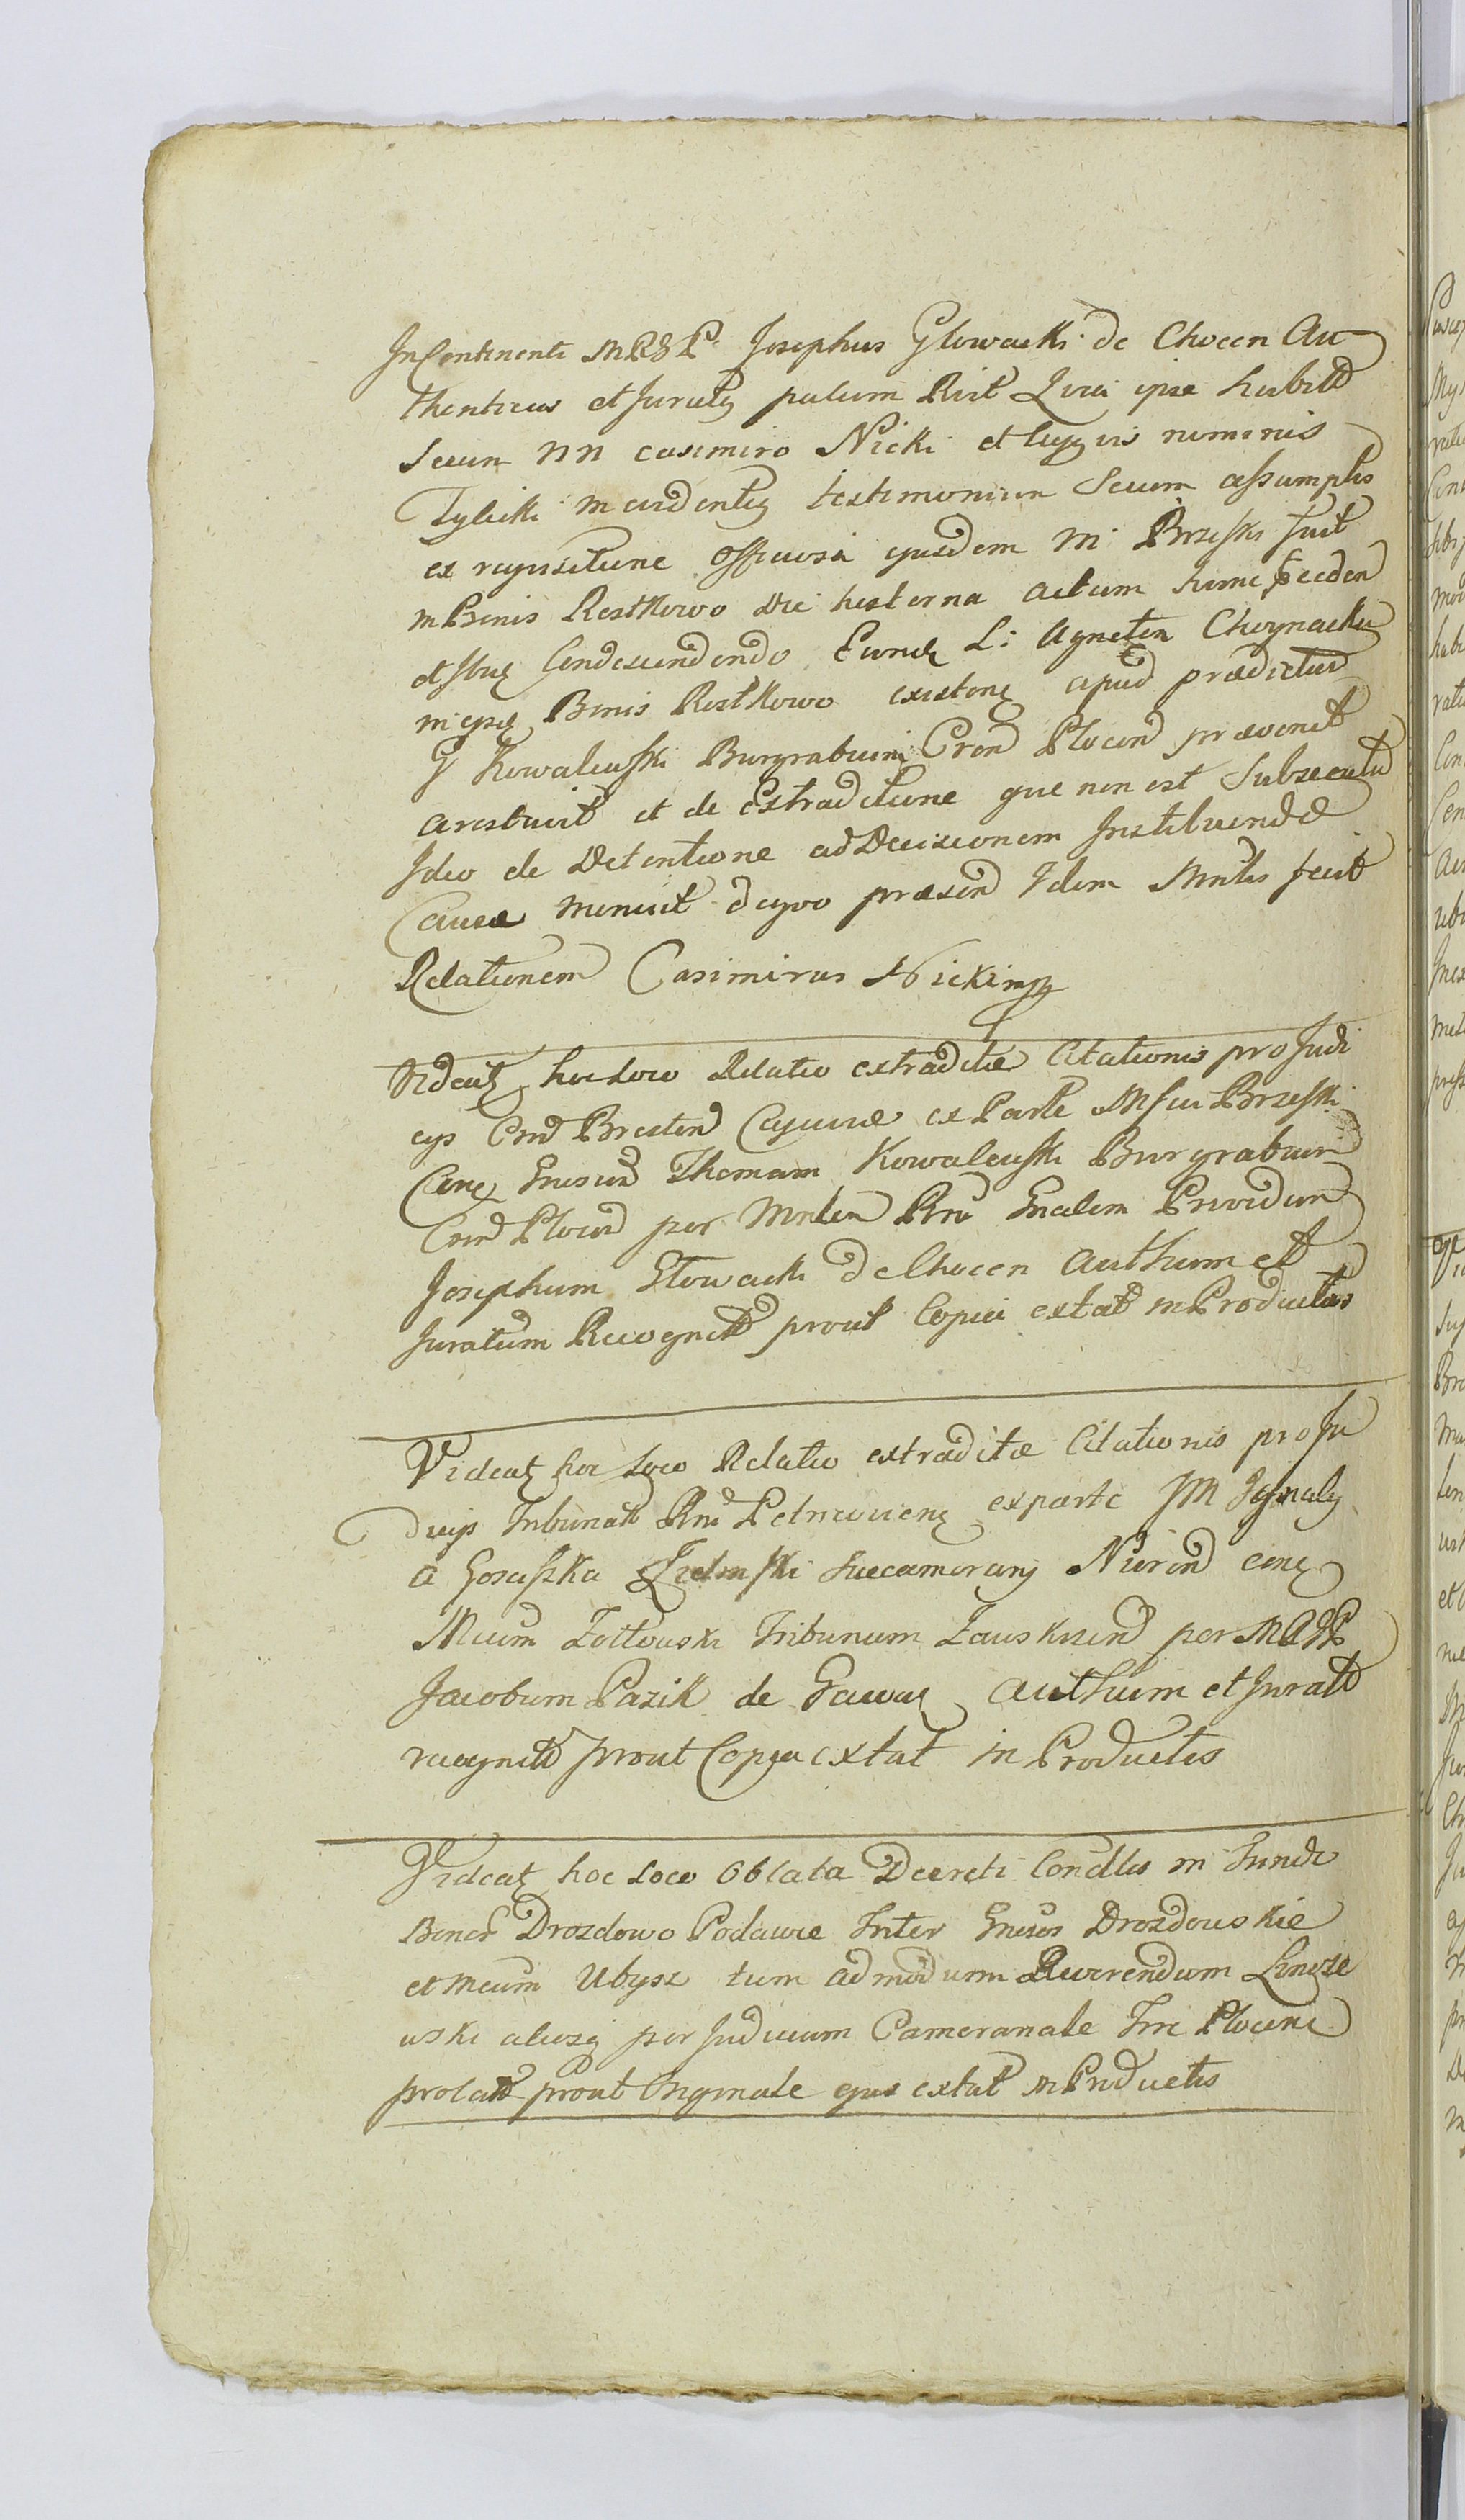 InContinenti MRGP Josephus Glowacki de Chocen Au
thenticus et Juratq palam Rnt Quia ipse habitt
secum NN Casimiro Nicki et alterius nominis
Tylicki in evidentq testimonium Secum assumptis
ex requisitione officiosa ejusdem M Brzeski fuit
in Bonis Rostkowo Die hesterna actum hunc præceden
et ibiq Condescendendo Fameq L: Agneten Choynacka
in ipsq Bonis Rostkowo existenq apud prædictum
G Kowalewski Burgrabium Cren Plocen prævenit
arestavit et de Extraditione que non est Subsecuta
Ideo de Detentione ad Decisionem Instituendæ
Causæ monuit de quo præsen Idem Mnlis fecit
Relationem Casimirus Nicki mp
Videatq hoc Loco Relatio extraditæ Citationis pro Judi
cys Crnd Bresten Cujaviæ ex Parte Mfci Brzeski
Conq Gnosum Thomam Kowalewski Burgrabium
Crnd Plocen per Mnlem Rni Gnalem Providum
Josephum Glowacki de Chocen Authum et
Juratum Recognitt prout Copia extat in Productis
Videatq hoc Loco Relatio extraditæ Citationis pro Ju
dicijs Tribunatt Rni Petricovienq ex parte JM Ignaty
a Goraszka Zielinski Succamerarij Nuren conq
Mcum Zottowski Tribunum Zawskrzen per MRGP
Jacobum Pazik de Gawaq Authum et Juratt
recognitt prout Copia extat in Productis
Videatq hoc Loco Oblata Decreti Condtls in Fundo
Bonor Drozdowo Podawce Inter Gnosos Drozdowskie
et Mcum Ubysz tum admodum Reverendum
uski aliosq per Judicium Camerale Trre Plocenq
prolatt prout Originale ejus extat in Productis